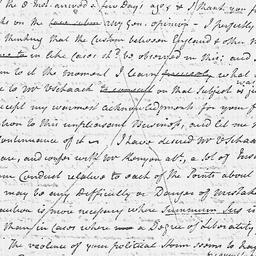 the 8 Inst. arrived a few Days ago, & I thank you fo
k on the very gen. opinion - I perfectly
thinking that the Custom between England & other N
in like Cases shd. be observed in this; and I
to it the moment I learn precisely what
to Mr. VSchaack on that Subject is jus
cept my warmest acknowledgments for your f
tion to this unpleasant Business, and let me
ontinuance of it — I have desired Mr. VSchaack
you, and confer with Mr. Kenyon abt. a lot of
our Conduct relative to each of the Points about
may be any Difficulty or Danger of Mistake
caution is more necessary where Summum Jus is
than in Cases where a Degree of Liberality
The violence of your political Storm seems to hav